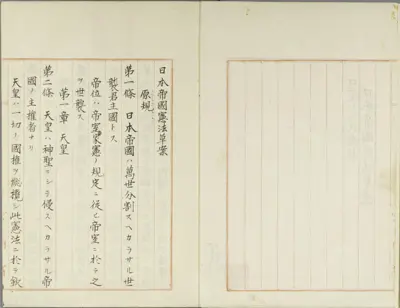 日本帝國憲法草案
原規
第一條　日本帝國ハ萬世分割スヘカラサル世
襲君主國トス
帝位ハ帝室家憲ノ規定ニ從ヒ帝室ニ於テ之
ヲ世襲ス
第一章　天皇
第二條　天皇ハ神聖ニシテ侵スヘカラサル帝
國ノ主權者ナリ
天皇ハ一切ノ國權ヲ總攬シ此憲法ニ於テ欽